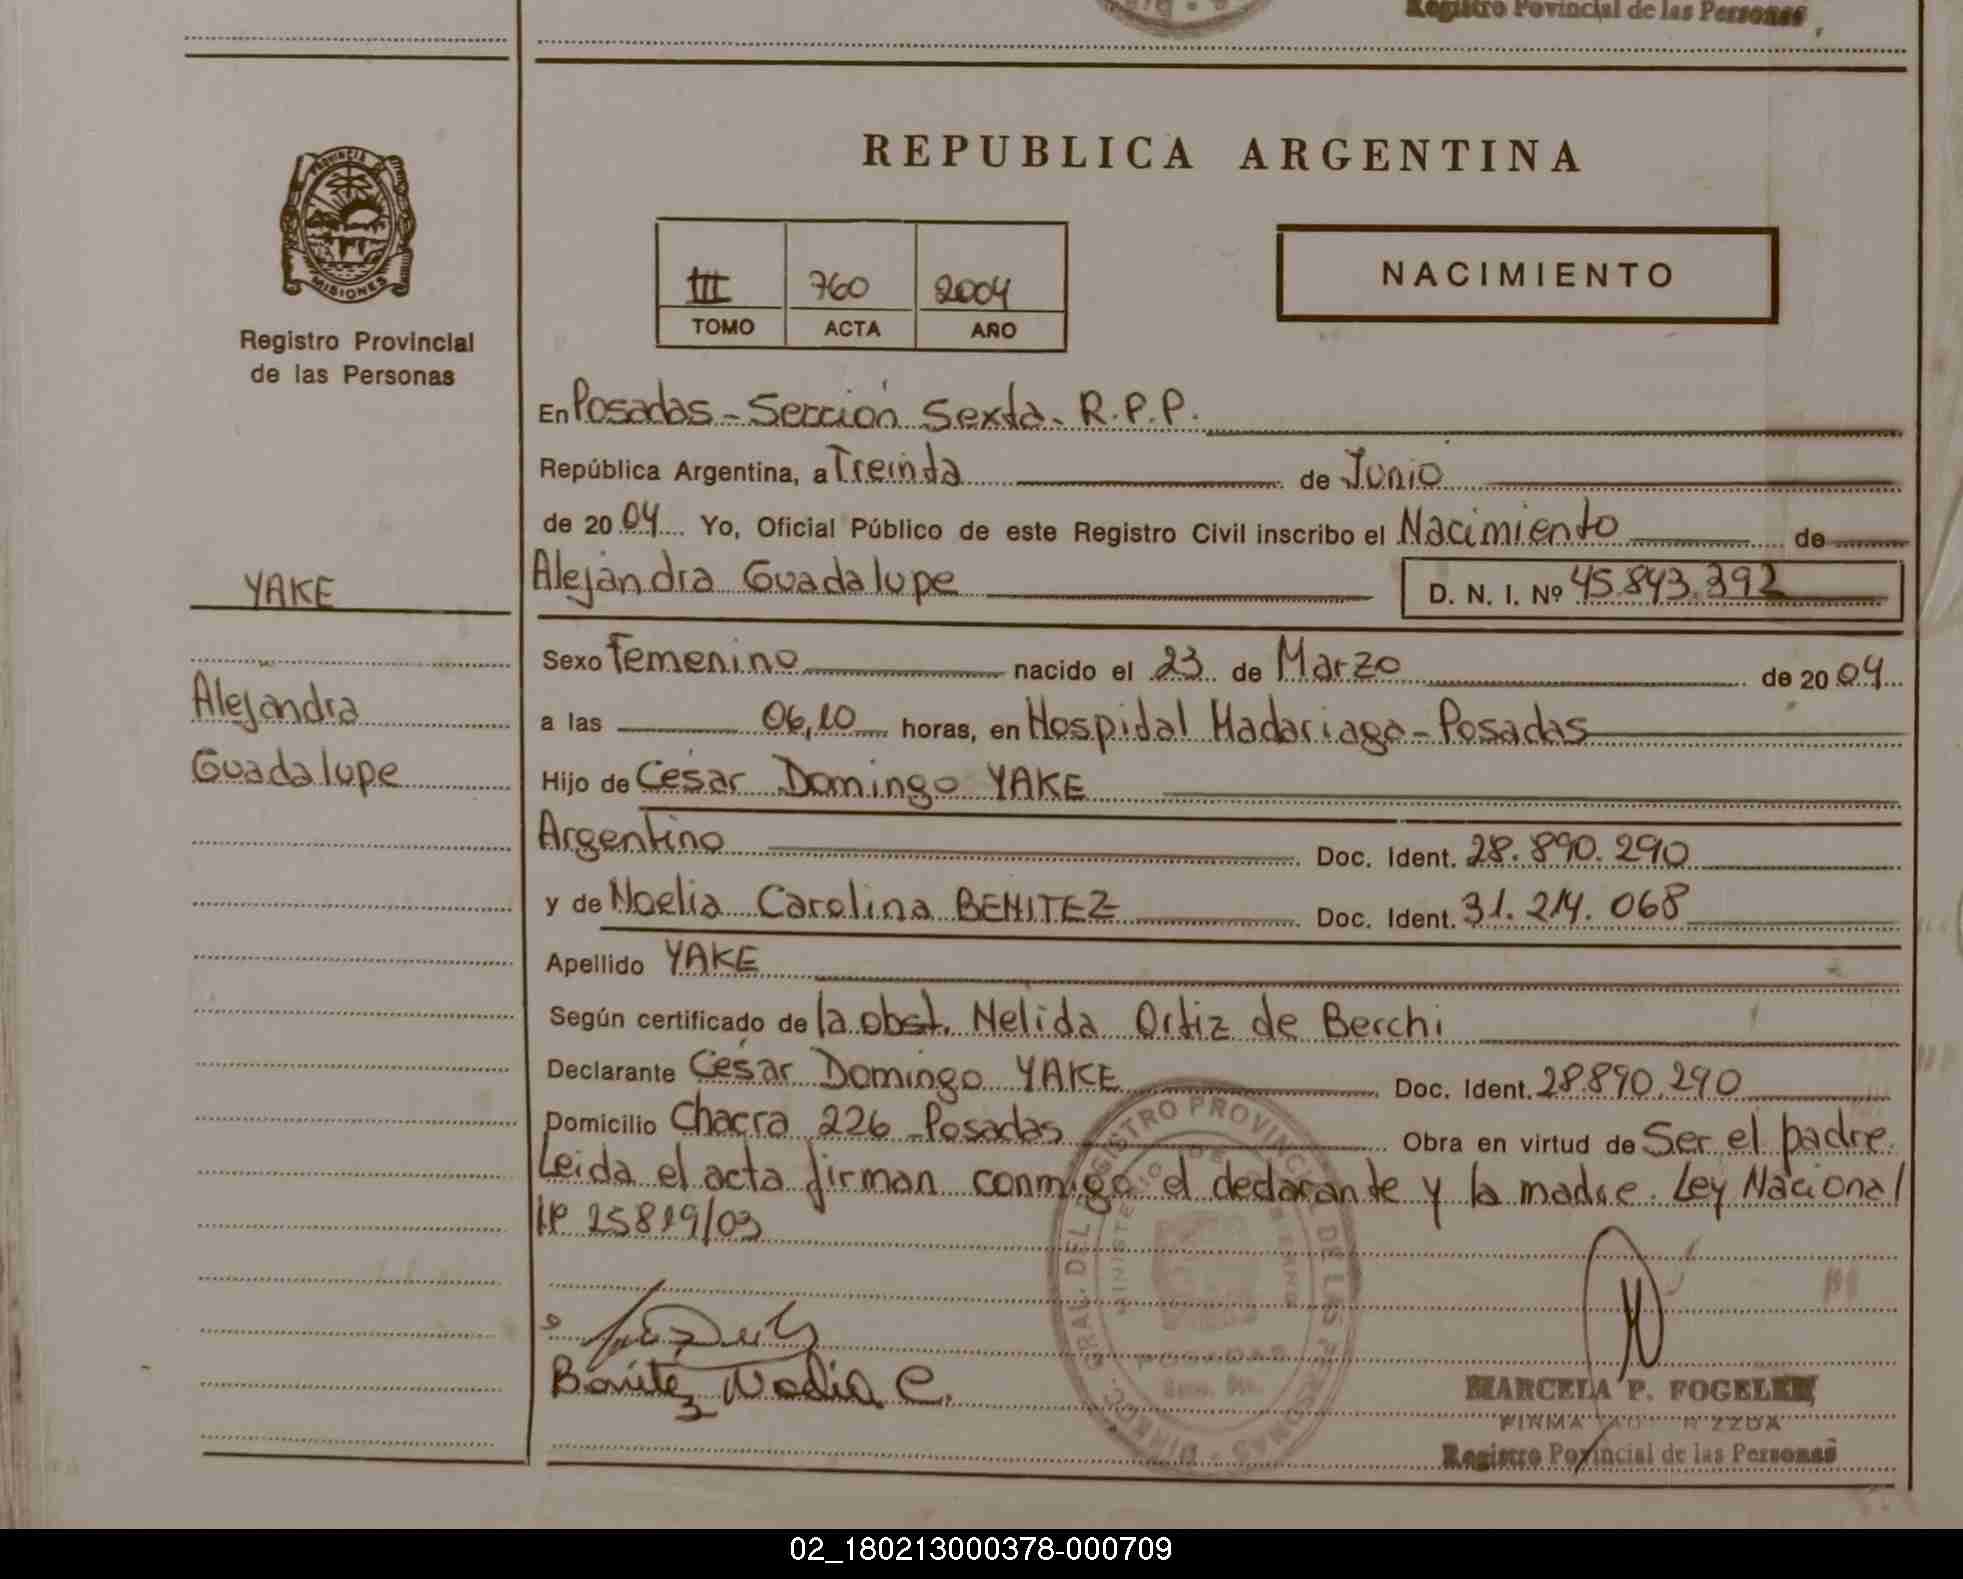 Registro Povincial de las Personas
REPUBLICA ARGENTINA
PROVINCIA DE
MISIONES
Registro Provincial
de las Personas
III 760 2004
TOMO ACTA AÑO
NACIMIENTO
En Posadas - Sección Sexta - R.P.P.
República Argentina, a Treinta de Junio
de 2004 Yo, Oficial Público de este Registro Civil inscribo el Nacimiento de
Alejandra Guadalupe D. N. I. Nº 45.843.392
YAKE
Alejandra
Guadalupe
Sexo Femenino nacido el 23 de Marzo de 2004
a las 06,10 horas, en Hospital Madariaga - Posadas
Hijo de César Domingo YAKE
Argentino Doc. Ident. 28.890.290
y de Noelia Carolina BENITEZ Doc. Ident. 31.214.068
Apellido YAKE
Según certificado de la obst. Nelida Ortiz de Berchi
Declarante César Domingo YAKE Doc. Ident. 28.890.290
Domicilio Chacra 226 Posadas Obra en virtud de Ser el padre
Leida el acta firman conmigo el declarante y la madre. Ley Nacional
Nº 25819/03
DIREC. GRAL. DEL REGISTRO PROVINCIAL DE LAS PERSONAS
MINISTERIO DE GOBIERNO
POSADAS
Benitez Noelia C.
MARCELA P. FOGELER
FIRMA
Registro Povincial de las Personas
02_180213000378-000709